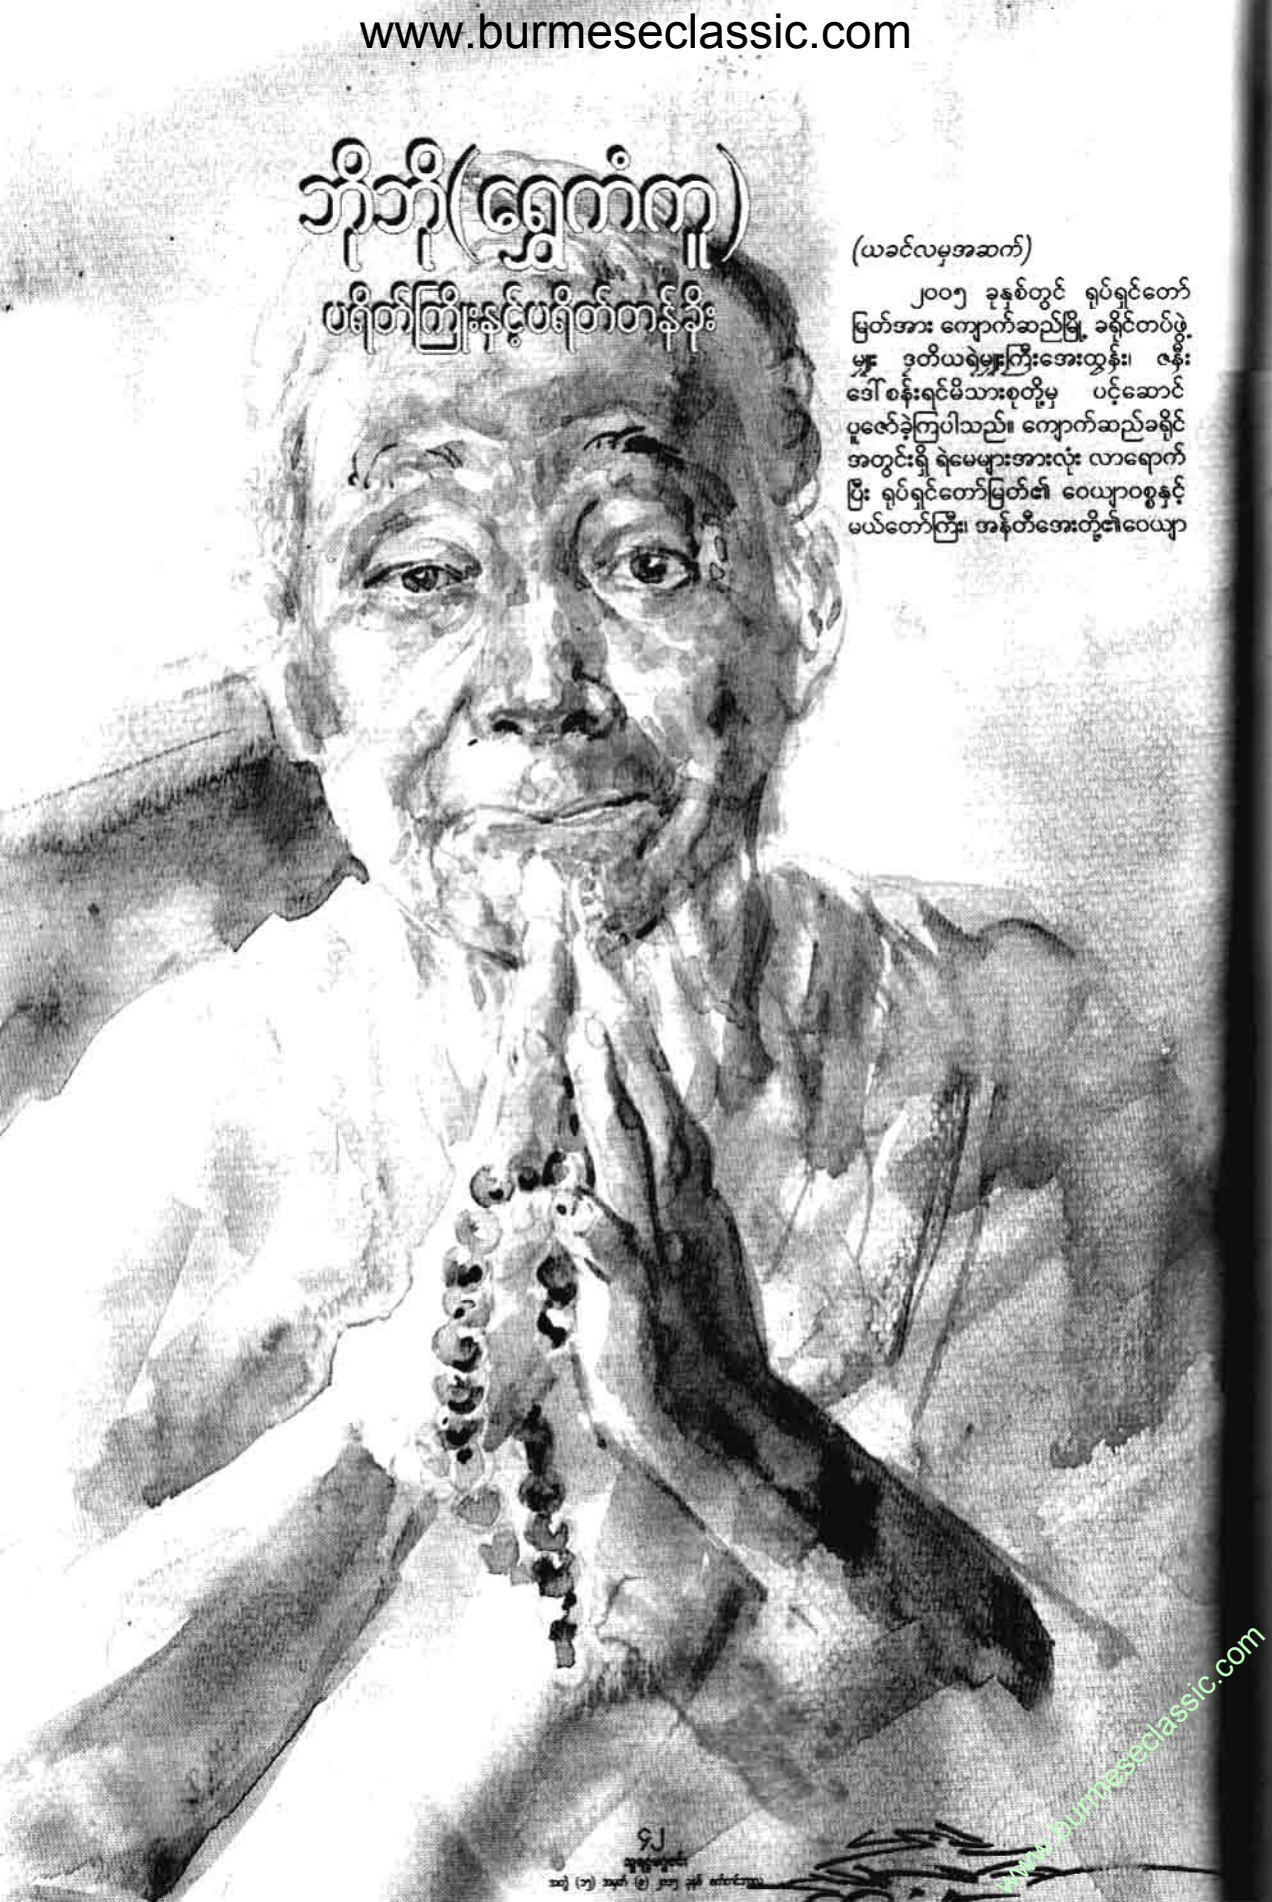 www.burmeseclassic.com
ဘိုဘို(ရွှေကံကူ)
ပရိတ်ကြိုးနှင့်ပရိတ်တန်ခိုး
(ယခင်လမှအဆက်)
၂၀၀၅ ခုနှစ်တွင် ရုပ်ရှင်တော်
မြတ်အား ကျောက်ဆည်မြို့ ခရိုင်တပ်ဖွဲ့
မှူး ဒုတိယရဲမှူးကြီးအေးထွန်း၊ ဇနီး
ဒေါ်စန်းရင်မိသားစုတို့မှ ပင့်ဆောင်
ပူဇော်ခဲ့ကြပါသည်။ ကျောက်ဆည်ခရိုင်
အတွင်းရှိ ရဲမေများအားလုံး လာရောက်
ပြီး ရုပ်ရှင်တော်မြတ်၏ ဝေယျာဝစ္စနှင့်
မယ်တော်ကြီး၊ အန်တီအေးတို့၏ဝေယျာ
၄၂
အတွဲ (၁၅) အမှတ်
www.burmeseclassic.com